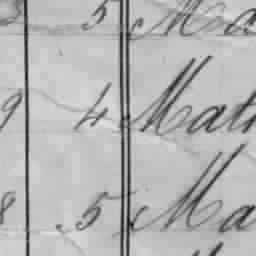 5 Ma
9 4 Mat
8 5 Ma